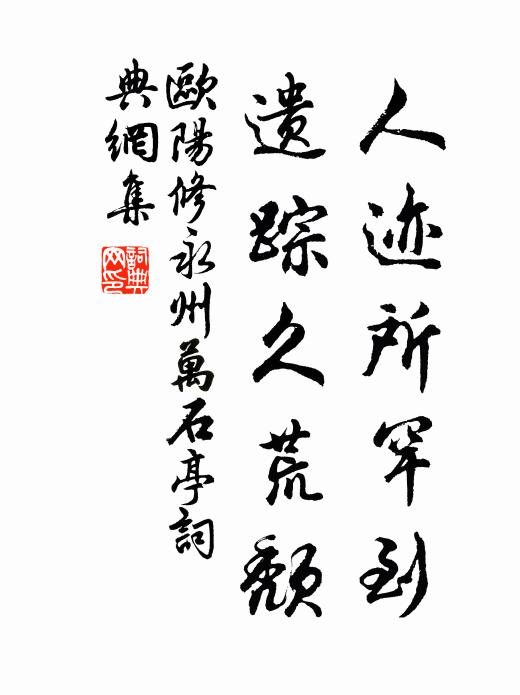 人迹所罕到
遗踪久荒颓
歐陽修永州萬石亭詞
典網集
詞典
网印